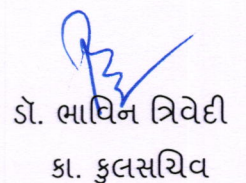 ડૉ. ભાવિન ત્રિવેદી
કા. કુલસચિવ